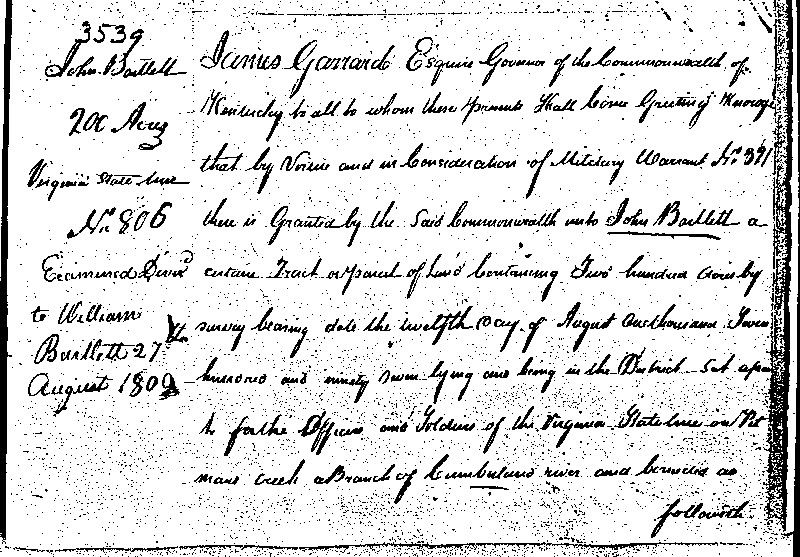 3539
John Bartlett
200 Acres
Virginia State line
No. 806
Examined & Delivd
to William
Bartlett 27th
August 1802
James Garrard Esquire Governor of the Commonwealth of
Kentucky to all to whom these presents Shall Come Greeting Know ye
that by Virtue and in Consideration of Military Warrant No. 391
there is Granted by the Said Commonwealth unto John Bartlett a
certain Tract or parcel of Land Containing Two hundred acres by
survey bearing date the twelfth Day of August one thousand Seven
hundred and ninety seven lying and being in the District Set apart
to for the Officers and Soldiers of the Virginia State line on Pit
mans creek a Branch of Cumberland river and bounded as
followeth.